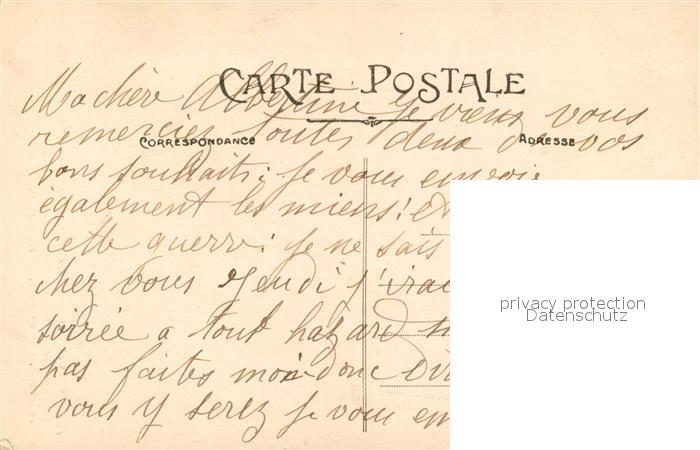 CARTE POSTALE
Ma chère Albertine je viens vous
remercier toutes deux de vos
CORRESPONDANCE
ADRESSE
bons souhaits; je vous envoie
également les miens! et
cette guerre: je ne sais
chez vous Jeudi j'irai
soirée a tout hazard
pas faites moi donc dir
vous y serez je vous em
privacy protection
Datenschutz